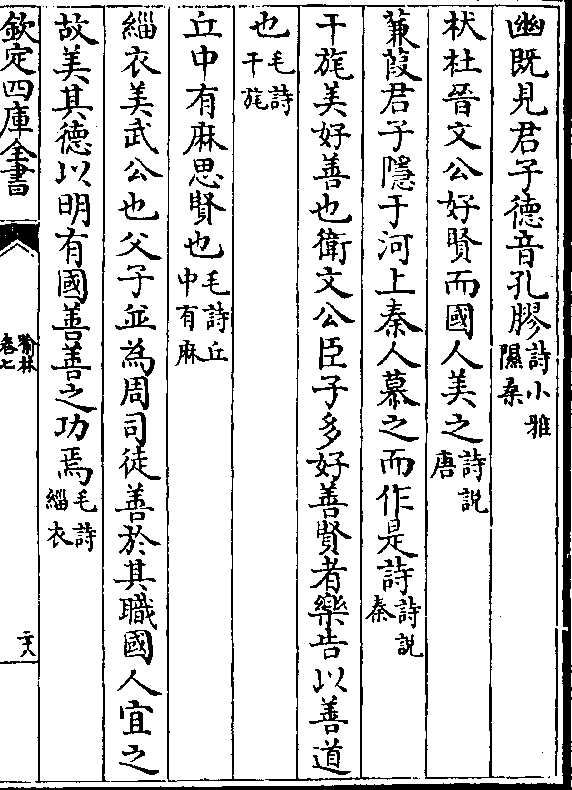 幽既見君子德音孔膠詩小雅隰桑
杕杜晉文公好賢而國人美之詩說唐
蒹葭君子隱于河上秦人慕之而作是詩詩說秦
干旄美好善也衛文公臣子多好善賢者樂告以善道
也毛詩干旄
丘中有麻思賢也毛詩丘中有麻
緇衣美武公也父子並為周司徒善於其職國人宜之
故美其德以明有國善善之功焉毛詩緇衣
欽定四庫全書 喻林卷七 二十八